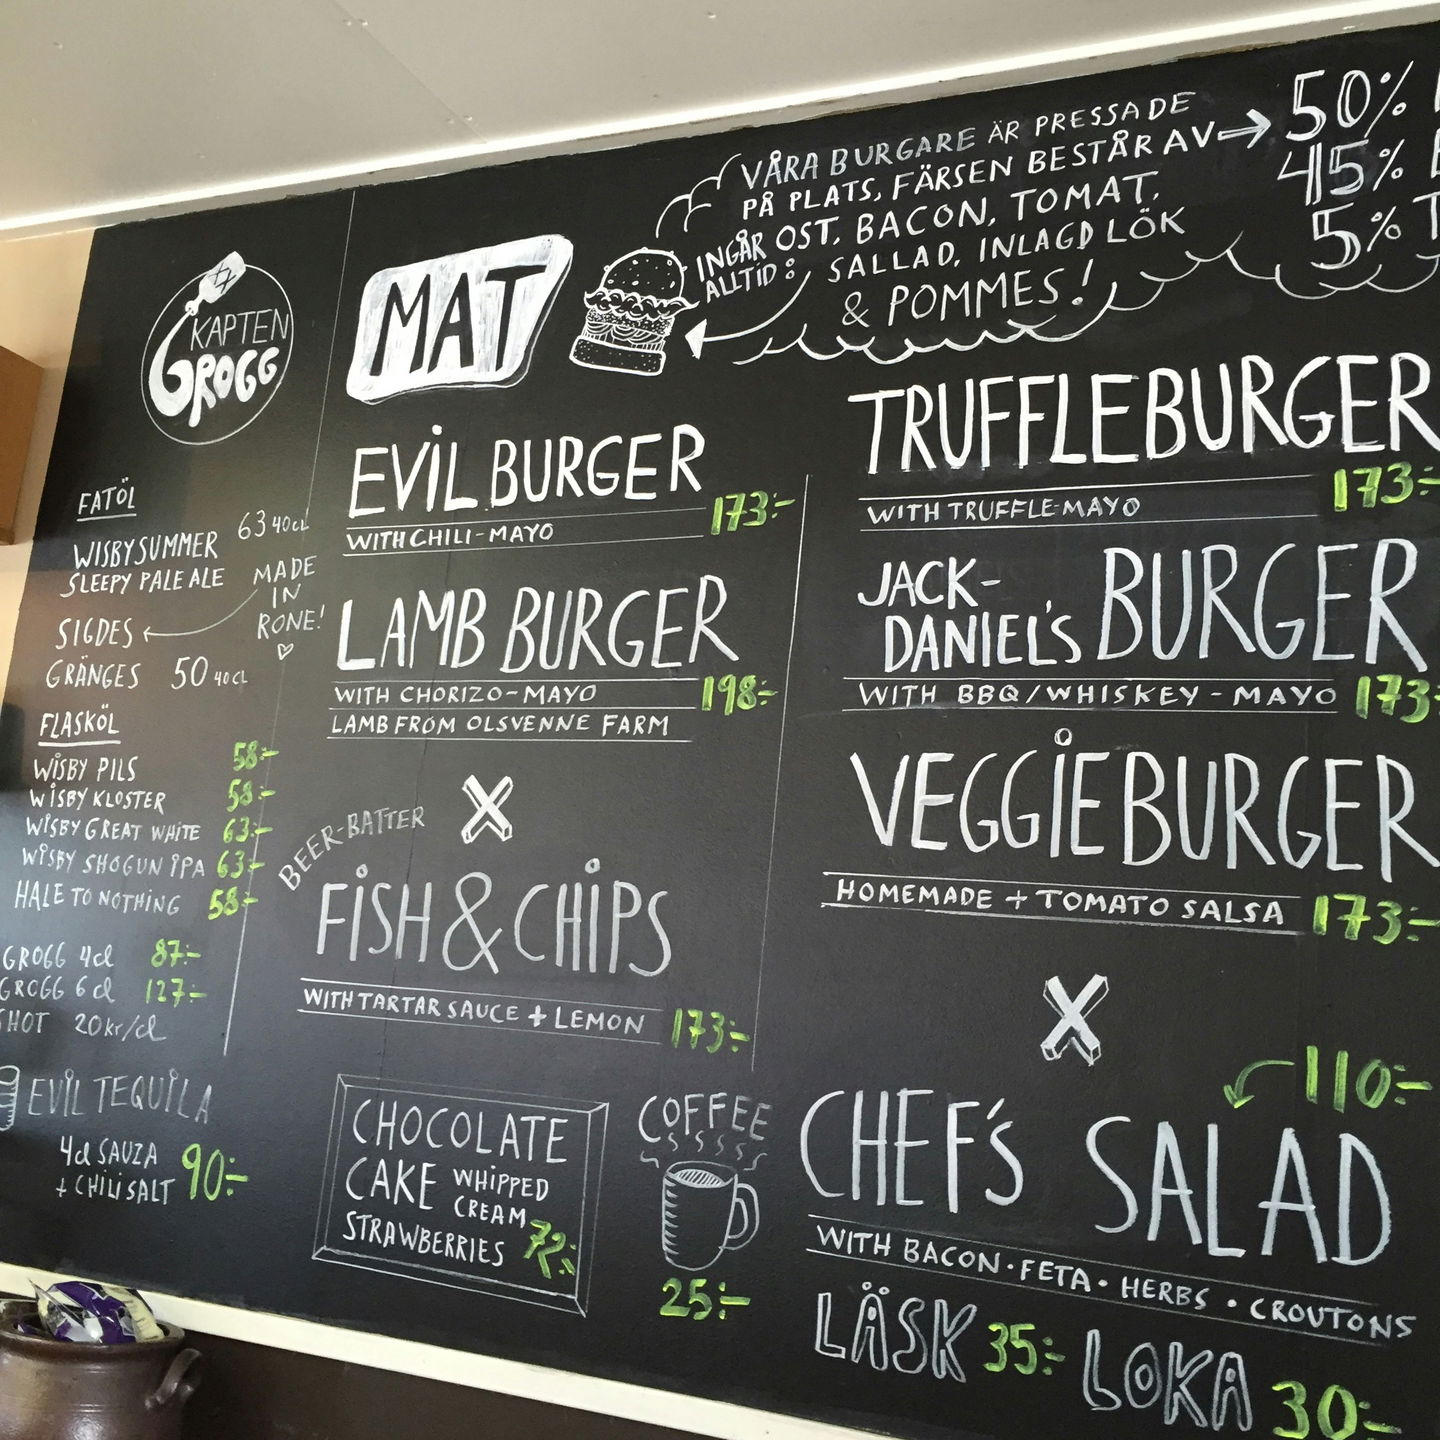 KAPTEN
GROGG
FATÖL
WISBY SUMMER 63 40CL
SLEEPY PALE ALE
MADE
IN
RONE!
SIGDES
GRÄNGES 50 40CL
FLASKÖL
WISBY PILS 58:-
WISBY KLOSTER 58:-
WISBY GREAT WHITE 63:-
WISBY SHOGUN IPA 63:-
HALE TO NOTHING 58:-
GROGG 4cl 87:-
GROGG 6cl 127:-
SHOT 20kr/cl
EVIL TEQUILA
4cl SAUZA
+ CHILISALT 90:-
MAT
VÅRA BURGARE ÄR PRESSADE
PÅ PLATS, FÄRSEN BESTÅR AV
50%
45%
5%
INGÅR
ALLTID:
OST, BACON, TOMAT,
SALLAD, INLAGD LÖK
& POMMES!
EVIL BURGER
WITH CHILI-MAYO 173:-
LAMB BURGER
WITH CHORIZO-MAYO 198:-
LAMB FROM OLSVENNE FARM
X
BEER-BATTER
FISH & CHIPS
WITH TARTAR SAUCE + LEMON 173:-
CHOCOLATE
CAKE WHIPPED
CREAM
STRAWBERRIES 72:-
COFFEE
25:-
TRUFFLEBURGER
WITH TRUFFLE-MAYO 173:-
JACK-
DANIEL'S BURGER
WITH BBQ/WHISKEY-MAYO 173:-
VEGGIEBURGER
HOMEMADE + TOMATO SALSA 173:-
X
110:-
CHEF'S SALAD
WITH BACON · FETA · HERBS · CROUTONS
LÄSK 35:- LOKA 30:-